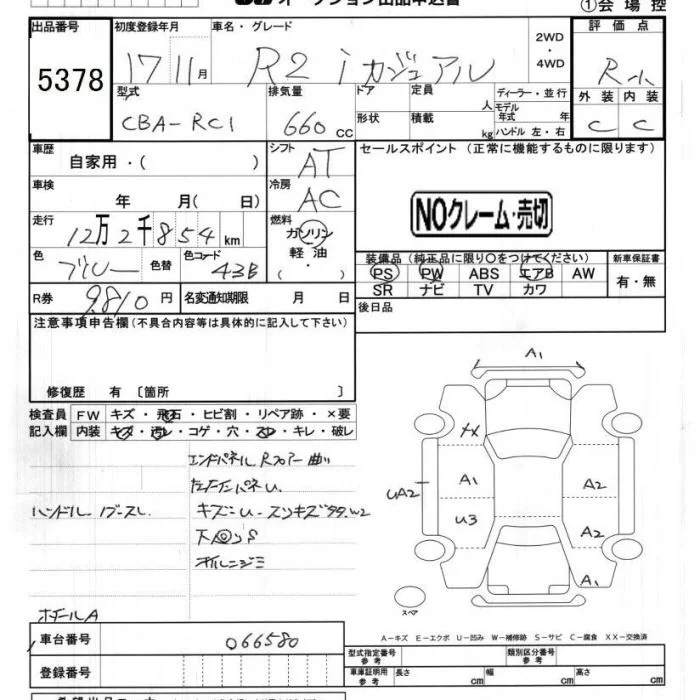 オークション出品申込書
①会 場 控
出品番号
5378
初度登録年月
17 11月
車名・グレード
R2 i カジュアル
2WD
・
4WD
評 価 点
R
外 装
内 装
C
C
型式
CBA-RC1
排気量
660 cc
ドア
形状
定員
人
積載
kg
ディーラー・並 行
モデル
年式
年
ハンドル 左・右
車歴
自家用・( )
シフト
AT
セールスポイント (正常に機能するものに限ります)
車検
年 月( 日)
冷房
AC
NOクレーム・売切
走行
12万2千854km
燃料
ガソリン
軽 油
色
ブルー
色替
色コード
43B
装備品(純正品に限り○をつけてください)
PS PW ABS エアB AW
SR ナビ TV カワ
新車保証書
有・無
R券
9,810円
名変通知期限
月 日
後日品
注意事項申告欄(不具合内容等は具体的に記入して下さい)
修復歴 有 〔箇所 〕
検査員
記入欄
FW キズ・飛石・ヒビ割・リペア跡・×要
内装 キズ・汚レ・コゲ・穴・スレ・キレ・破レ
エンドパネル Rフロアー曲り
ハンドル
ホイールA
A1
A1
UA2
U3
A2
A2
A1
スペア
A-キズ E-エクボ U-凹み W-補修跡 S-サビ C-腐食 XX-交換済
車台番号
066580
登録番号
型式指定番号
参考
類別区分番号
参考
車庫証明用
参考
長さ cm
幅 cm
高さ cm